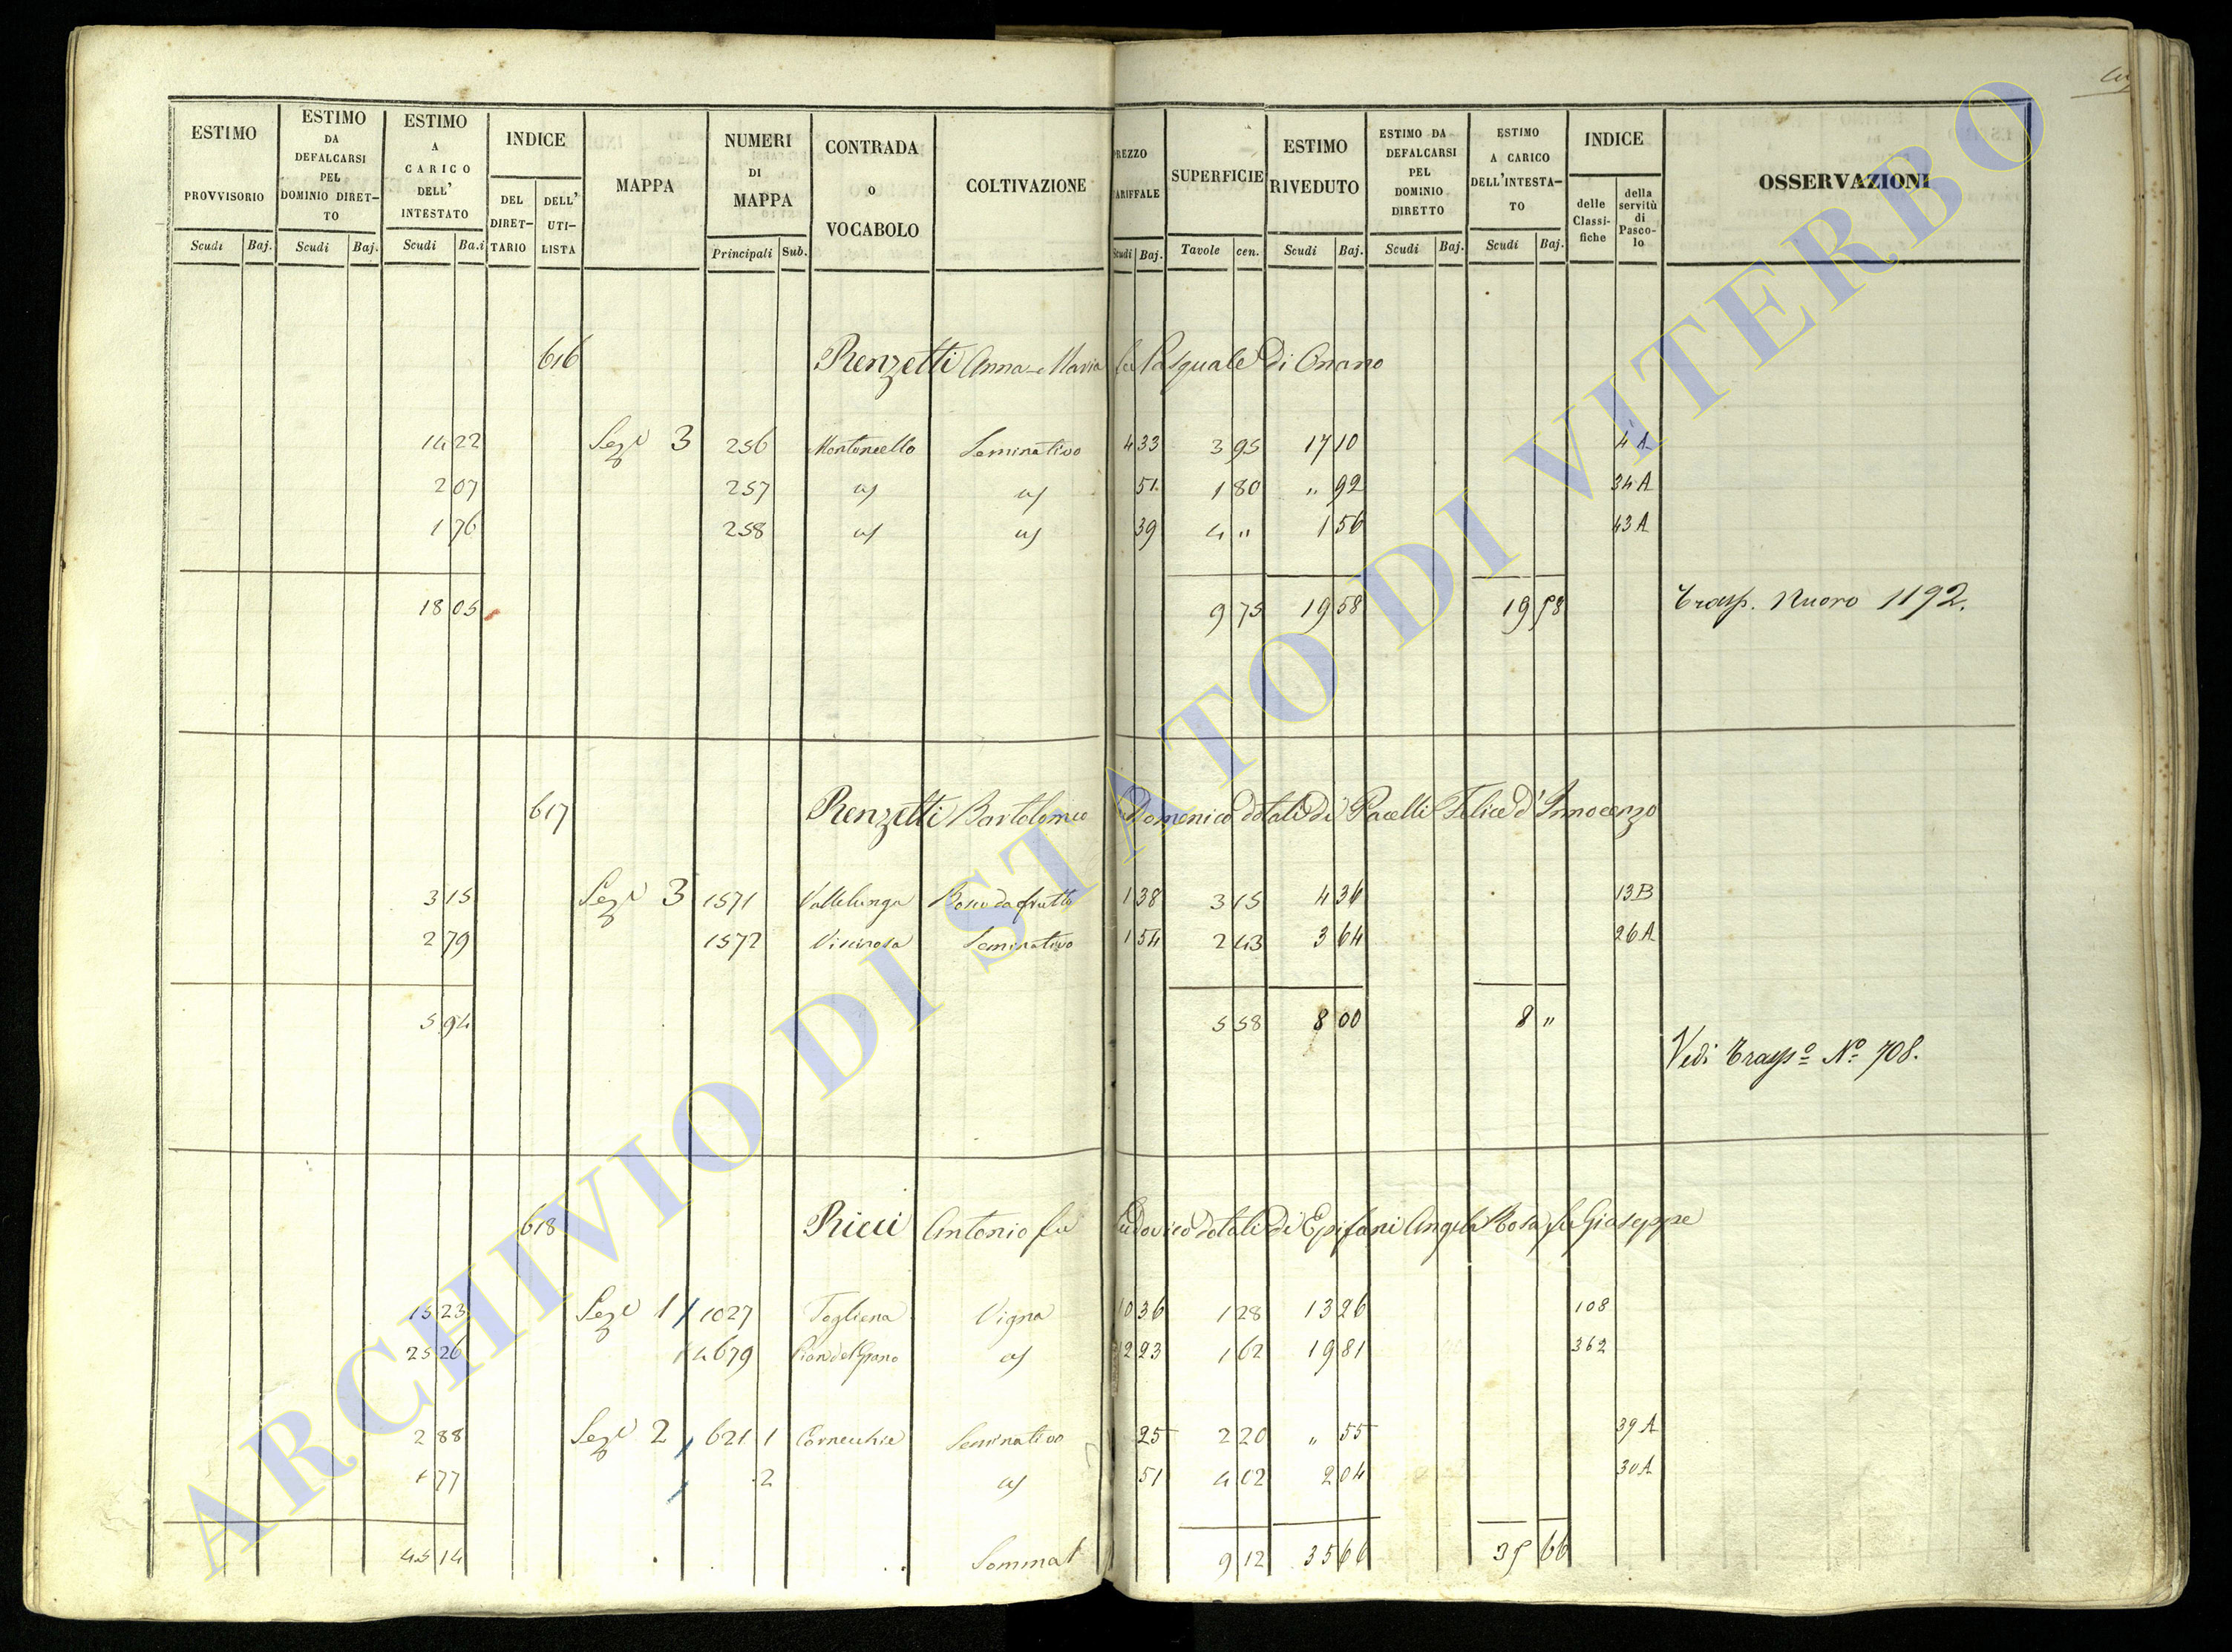 ESTIMO PROVVISORIO Scudi Baj.
ESTIMO DA DEFALCARSI PEL DOMINIO DIRET-TO Scudi Baj.
ESTIMO A CARICO DELL' INTESTATO Scudi Ba.i
INDICE DEL DIRET-TARIO DELL' UTI-LISTA
MAPPA
NUMERI DI MAPPA Principali Sub.
CONTRADA O VOCABOLO
COLTIVAZIONE
PREZZO TARIFFALE Scudi Baj.
SUPERFICIE Tavole cen.
ESTIMO RIVEDUTO Scudi Baj.
ESTIMO DA DEFALCARSI PEL DOMINIO DIRETTO Scudi Baj.
ESTIMO A CARICO DELL'INTESTA-TO Scudi Baj.
INDICE delle Classi-fiche della servitù di Pasco-lo
OSSERVAZIONI
616 Renzetti Anna Maria fu Pasquale di Onano
14 22 Sezе 3 256 Montoncello Seminativo 4 33 3 95 17 10 4 A
2 07 257 51 1 80 " 92 34 A
1 76 258 39 4 " 1 56 43 A
18 05 9 75 19 58 19 58 Trasp. Nuovo 1192.
617 Renzetti Bartolomeo Domenico dotali di Pacelli Felice d'Innocenzo
3 15 Seze 3 1571 Vallelunga Bosco da frutto 1 38 3 15 4 36 13 B
2 79 1572 Seminativo 1 54 2 43 3 64 26 A
5 94 5 58 8 00 8 "
Vedi Traspo No 708.
618 Ricci Antonio fu Ludovico dotali di Epifani Angela Rosa fu Giuseppe
15 23 Seze 1 1027 Vigna 10 36 1 28 13 26 108
25 26 4679 12 23 1 62 19 81 362
2 88 Seze 2 621 1 Cornecchie Seminativo 25 2 20 " 55 39 A
1 77 2 51 4 02 2 04 30 A
45 14 Somma 9 12 35 66 35 66
ARCHIVIO DI STATO DI VITERBO